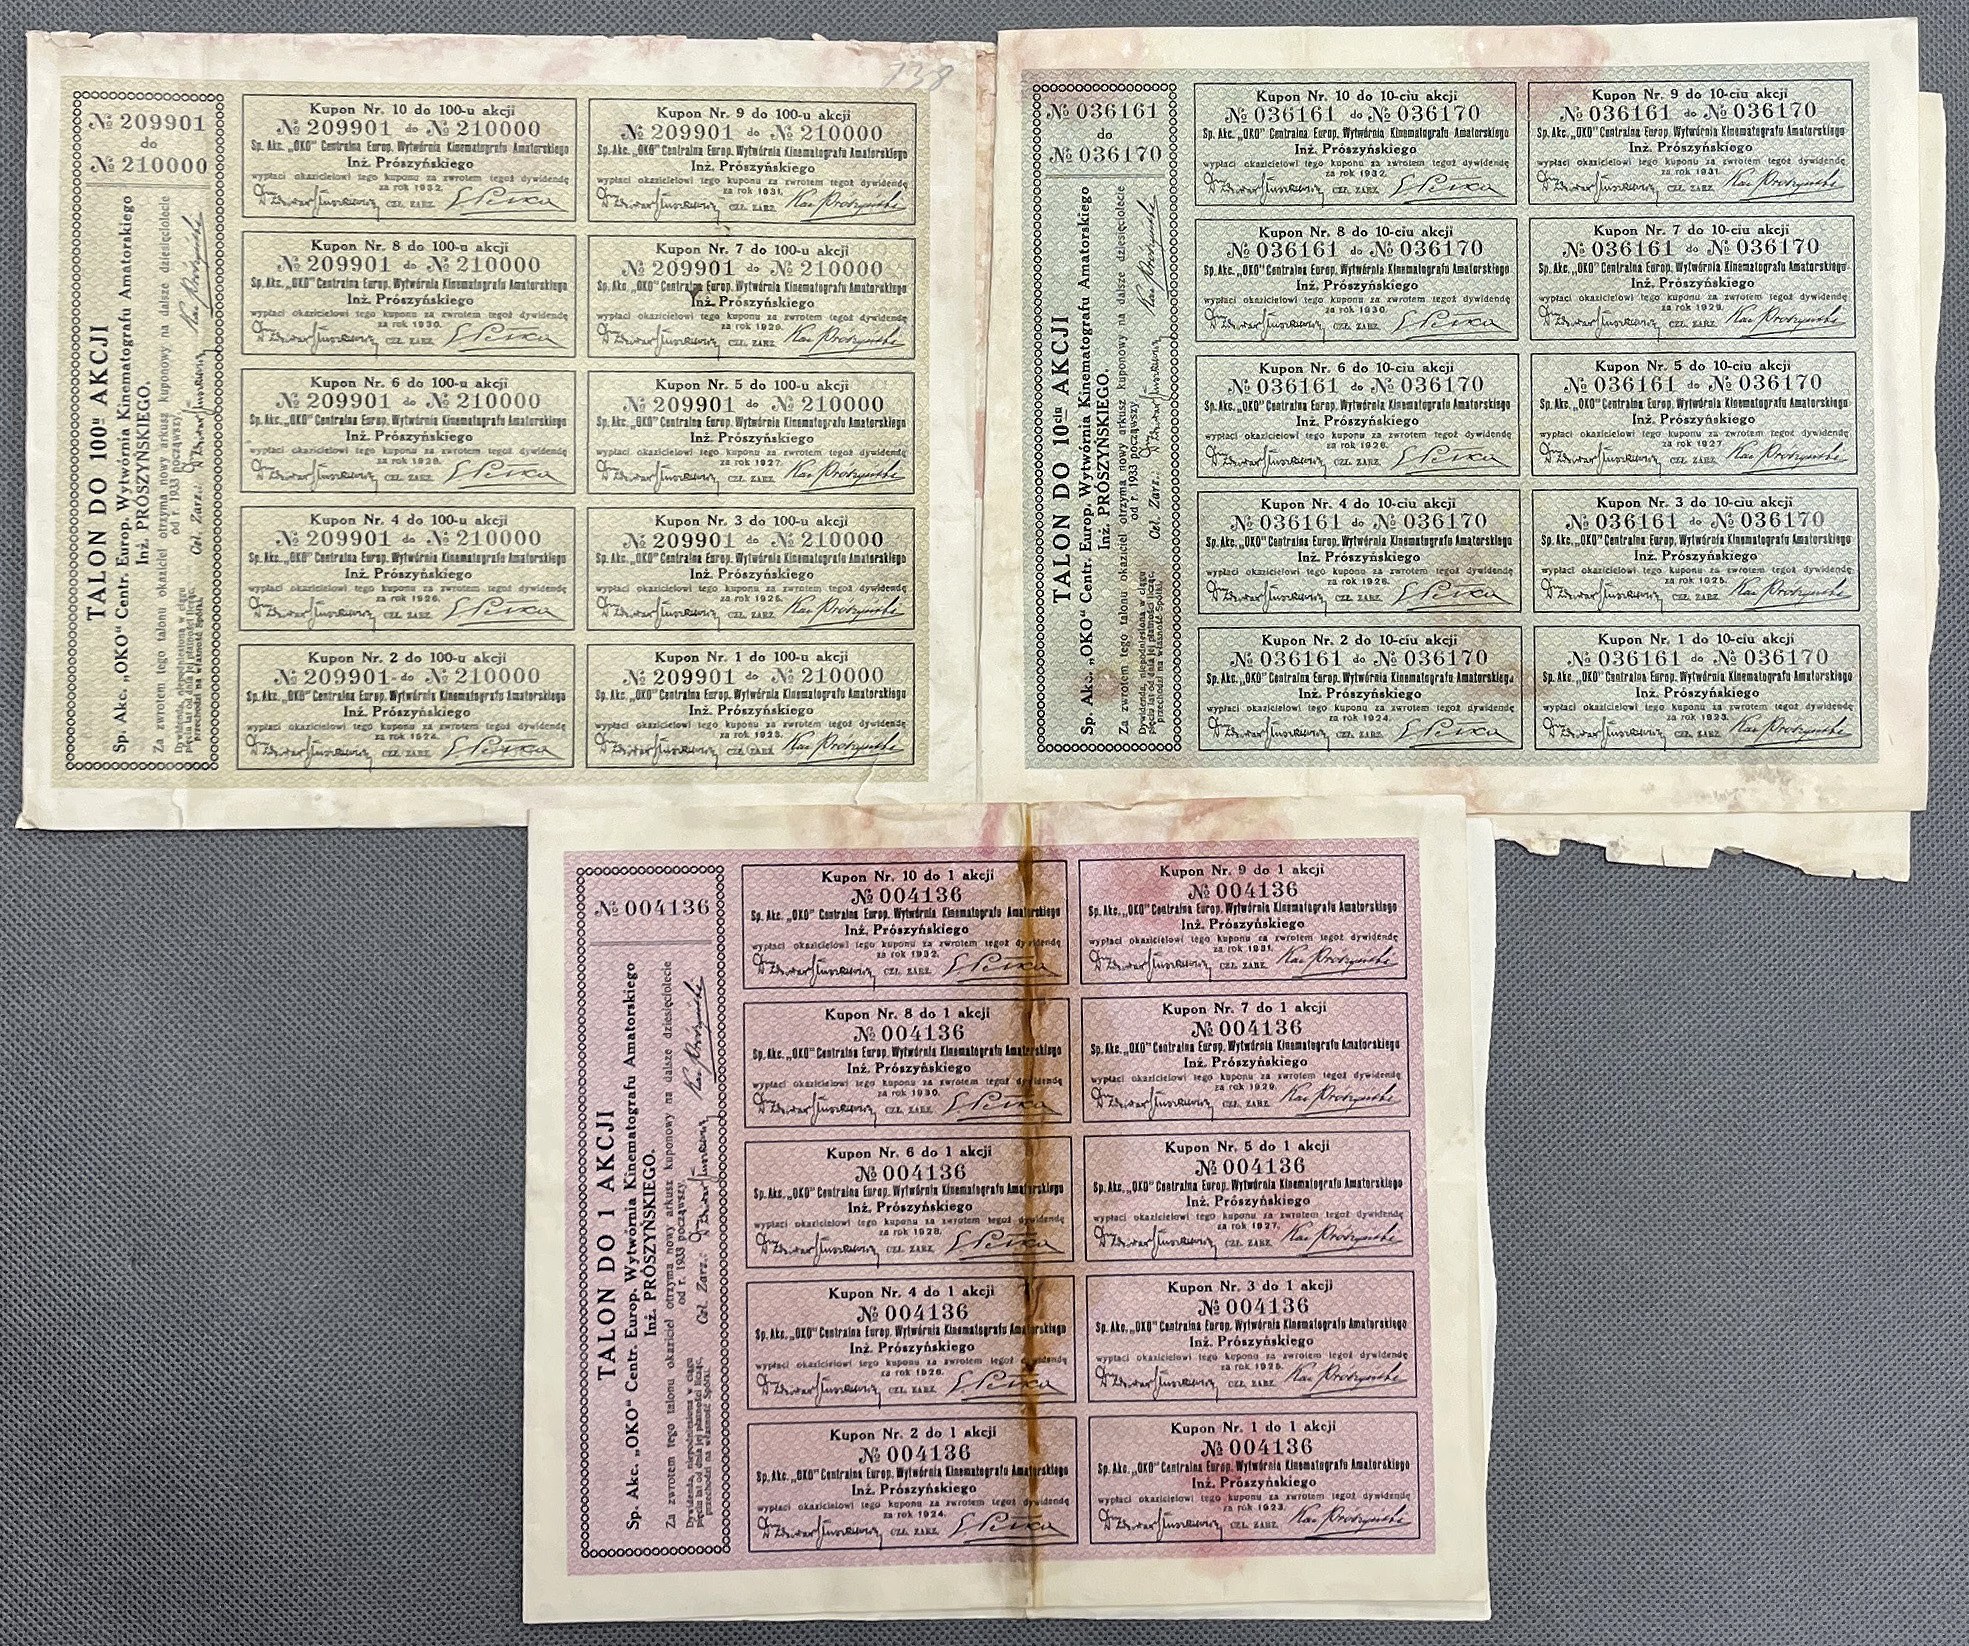 138
№ 209901
do
№ 210000
TALON DO 100u AKCJI
Sp. Akc. „OKO" Centr. Europ. Wytwórnia Kinematografu Amatorskiego
Inż. PRÓSZYŃSKIEGO.
Za zwrotem tego talonu okaziciel otrzyma nowy arkusz kuponowy na dalsze dziesięciolecie
od r. 1933 począwszy.
Dywidenda, niepodniesiona w ciągu
pięciu lat od dnia jej płatności licząc,
przechodzi na własność Spółki.
Czł. Zarz.
Kupon Nr. 10 do 100-u akcji
№ 209901 do № 210000
Sp. Akc. „OKO" Centralna Europ. Wytwórnia Kinematografu Amatorskiego
Inż. Prószyńskiego
wypłaci okazicielowi tego kuponu za zwrotem tegoż dywidendę
za rok 1932.
CZŁ. ZARZ.
Kupon Nr. 9 do 100-u akcji
№ 209901 do № 210000
Sp. Akc. „OKO" Centralna Europ. Wytwórnia Kinematografu Amatorskiego
Inż. Prószyńskiego
wypłaci okazicielowi tego kuponu za zwrotem tegoż dywidendę
za rok 1931.
CZŁ. ZARZ.
Kupon Nr. 8 do 100-u akcji
№ 209901 do № 210000
Sp. Akc. „OKO" Centralna Europ. Wytwórnia Kinematografu Amatorskiego
Inż. Prószyńskiego
wypłaci okazicielowi tego kuponu za zwrotem tegoż dywidendę
za rok 1930.
CZŁ. ZARZ.
Kupon Nr. 7 do 100-u akcji
№ 209901 do № 210000
Sp. Akc. „OKO" Centralna Europ. Wytwórnia Kinematografu Amatorskiego
Inż. Prószyńskiego
wypłaci okazicielowi tego kuponu za zwrotem tegoż dywidendę
za rok 1929.
CZŁ. ZARZ.
Kupon Nr. 6 do 100-u akcji
№ 209901 do № 210000
Sp. Akc. „OKO" Centralna Europ. Wytwórnia Kinematografu Amatorskiego
Inż. Prószyńskiego
wypłaci okazicielowi tego kuponu za zwrotem tegoż dywidendę
za rok 1928.
CZŁ. ZARZ.
Kupon Nr. 5 do 100-u akcji
№ 209901 do № 210000
Sp. Akc. „OKO" Centralna Europ. Wytwórnia Kinematografu Amatorskiego
Inż. Prószyńskiego
wypłaci okazicielowi tego kuponu za zwrotem tegoż dywidendę
za rok 1927.
CZŁ. ZARZ.
Kupon Nr. 4 do 100-u akcji
№ 209901 do № 210000
Sp. Akc. „OKO" Centralna Europ. Wytwórnia Kinematografu Amatorskiego
Inż. Prószyńskiego
wypłaci okazicielowi tego kuponu za zwrotem tegoż dywidendę
za rok 1926.
CZŁ. ZARZ.
Kupon Nr. 3 do 100-u akcji
№ 209901 do № 210000
Sp. Akc. „OKO" Centralna Europ. Wytwórnia Kinematografu Amatorskiego
Inż. Prószyńskiego
wypłaci okazicielowi tego kuponu za zwrotem tegoż dywidendę
za rok 1925.
CZŁ. ZARZ.
Kupon Nr. 2 do 100-u akcji
№ 209901 do № 210000
Sp. Akc. „OKO" Centralna Europ. Wytwórnia Kinematografu Amatorskiego
Inż. Prószyńskiego
wypłaci okazicielowi tego kuponu za zwrotem tegoż dywidendę
za rok 1924.
CZŁ. ZARZ.
Kupon Nr. 1 do 100-u akcji
№ 209901 do № 210000
Sp. Akc. „OKO" Centralna Europ. Wytwórnia Kinematografu Amatorskiego
Inż. Prószyńskiego
wypłaci okazicielowi tego kuponu za zwrotem tegoż dywidendę
za rok 1923.
CZŁ. ZARZ.
№ 036161
do
№ 036170
TALON DO 10ciu AKCJI
Sp. Akc. „OKO" Centr. Europ. Wytwórnia Kinematografu Amatorskiego
Inż. PRÓSZYŃSKIEGO.
Za zwrotem tego talonu okaziciel otrzyma nowy arkusz kuponowy na dalsze dziesięciolecie
od r. 1933 począwszy
Dywidenda, niepodniesiona w ciągu
pięciu lat od dnia jej płatności licząc,
przechodzi na własność Spółki.
Czł. Zarz.
Kupon Nr. 10 do 10-ciu akcji
№ 036161 do № 036170
Sp. Akc. „OKO" Centralna Europ. Wytwórnia Kinematografu Amatorskiego
Inż. Prószyńskiego
wypłaci okazicielowi tego kuponu za zwrotem tegoż dywidendę
za rok 1932.
CZŁ. ZARZ.
Kupon Nr. 9 do 10-ciu akcji
№ 036161 do № 036170
Sp. Akc. „OKO" Centralna Europ. Wytwórnia Kinematografu Amatorskiego
Inż. Prószyńskiego
wypłaci okazicielowi tego kuponu za zwrotem tegoż dywidendę
za rok 1931.
CZŁ. ZARZ.
Kupon Nr. 8 do 10-ciu akcji
№ 036161 do № 036170
Sp. Akc. „OKO" Centralna Europ. Wytwórnia Kinematografu Amatorskiego
Inż. Prószyńskiego
wypłaci okazicielowi tego kuponu za zwrotem tegoż dywidendę
za rok 1930.
CZŁ. ZARZ.
Kupon Nr. 7 do 10-ciu akcji
№ 036161 do № 036170
Sp. Akc. „OKO" Centralna Europ. Wytwórnia Kinematografu Amatorskiego
Inż. Prószyńskiego
wypłaci okazicielowi tego kuponu za zwrotem tegoż dywidendę
za rok 1929.
CZŁ. ZARZ.
Kupon Nr. 6 do 10-ciu akcji
№ 036161 do № 036170
Sp. Akc. „OKO" Centralna Europ. Wytwórnia Kinematografu Amatorskiego
Inż. Prószyńskiego
wypłaci okazicielowi tego kuponu za zwrotem tegoż dywidendę
za rok 1928.
CZŁ. ZARZ.
Kupon Nr. 5 do 10-ciu akcji
№ 036161 do № 036170
Sp. Akc. „OKO" Centralna Europ. Wytwórnia Kinematografu Amatorskiego
Inż. Prószyńskiego
wypłaci okazicielowi tego kuponu za zwrotem tegoż dywidendę
za rok 1927
CZŁ. ZARZ.
Kupon Nr. 4 do 10-ciu akcji
№ 036161 do № 036170
Sp. Akc. „OKO" Centralna Europ. Wytwórnia Kinematografu Amatorskiego
Inż. Prószyńskiego
wypłaci okazicielowi tego kuponu za zwrotem tegoż dywidendę
za rok 1926.
CZŁ. ZARZ.
Kupon Nr. 3 do 10-ciu akcji
№ 036161 do № 036170
Sp. Akc. „OKO" Centralna Europ. Wytwórnia Kinematografu Amatorskiego
Inż. Prószyńskiego
wypłaci okazicielowi tego kuponu za zwrotem tegoż dywidendę
za rok 1925.
CZŁ. ZARZ.
Kupon Nr. 2 do 10-ciu akcji
№ 036161 do № 036170
Sp. Akc. „OKO" Centralna Europ. Wytwórnia Kinematografu Amatorskiego
Inż. Prószyńskiego
wypłaci okazicielowi tego kuponu za zwrotem tegoż dywidendę
za rok 1924.
CZŁ. ZARZ.
Kupon Nr. 1 do 10-ciu akcji
№ 036161 do № 036170
Sp. Akc. „OKO" Centralna Europ. Wytwórnia Kinematografu Amatorskiego
Inż. Prószyńskiego
wypłaci okazicielowi tego kuponu za zwrotem tegoż dywidendę
za rok 1923.
CZŁ. ZARZ.
№ 004136
TALON DO 1 AKCJI
Sp. Akc. „OKO" Centr. Europ. Wytwórnia Kinematografu Amatorskiego
Inż. PRÓSZYŃSKIEGO.
Za zwrotem tego talonu okaziciel otrzyma nowy arkusz kuponowy na dalsze dziesięciolecie
od r. 1933 począwszy.
Dywidenda, niepodniesiona w ciągu
pięciu lat od dnia jej płatności licząc,
przechodzi na własność Spółki.
Czł. Zarz.
Kupon Nr. 10 do 1 akcji
№ 004136
Sp. Akc. „OKO" Centralna Europ. Wytwórnia Kinematografu Amatorskiego
Inż. Prószyńskiego
wypłaci okazicielowi tego kuponu za zwrotem tegoż dywidendę
za rok 1932.
CZŁ. ZARZ.
Kupon Nr. 9 do 1 akcji
№ 004136
Sp. Akc. „OKO" Centralna Europ. Wytwórnia Kinematografu Amatorskiego
Inż. Prószyńskiego
wypłaci okazicielowi tego kuponu za zwrotem tegoż dywidendę
za rok 1931.
CZŁ. ZARZ.
Kupon Nr. 8 do 1 akcji
№ 004136
Sp. Akc. „OKO" Centralna Europ. Wytwórnia Kinematografu Amatorskiego
Inż. Prószyńskiego
wypłaci okazicielowi tego kuponu za zwrotem tegoż dywidendę
za rok 1930.
CZŁ. ZARZ.
Kupon Nr. 7 do 1 akcji
№ 004136
Sp. Akc. „OKO" Centralna Europ. Wytwórnia Kinematografu Amatorskiego
Inż. Prószyńskiego
wypłaci okazicielowi tego kuponu za zwrotem tegoż dywidendę
za rok 1929.
CZŁ. ZARZ.
Kupon Nr. 6 do 1 akcji
№ 004136
Sp. Akc. „OKO" Centralna Europ. Wytwórnia Kinematografu Amatorskiego
Inż. Prószyńskiego
wypłaci okazicielowi tego kuponu za zwrotem tegoż dywidendę
za rok 1928.
CZŁ. ZARZ.
Kupon Nr. 5 do 1 akcji
№ 004136
Sp. Akc. „OKO" Centralna Europ. Wytwórnia Kinematografu Amatorskiego
Inż. Prószyńskiego
wypłaci okazicielowi tego kuponu za zwrotem tegoż dywidendę
za rok 1927.
CZŁ. ZARZ.
Kupon Nr. 4 do 1 akcji
№ 004136
Sp. Akc. „OKO" Centralna Europ. Wytwórnia Kinematografu Amatorskiego
Inż. Prószyńskiego
wypłaci okazicielowi tego kuponu za zwrotem tegoż dywidendę
za rok 1926.
CZŁ. ZARZ.
Kupon Nr. 3 do 1 akcji
№ 004136
Sp. Akc. „OKO" Centralna Europ. Wytwórnia Kinematografu Amatorskiego
Inż. Prószyńskiego
wypłaci okazicielowi tego kuponu za zwrotem tegoż dywidendę
za rok 1925.
CZŁ. ZARZ.
Kupon Nr. 2 do 1 akcji
№ 004136
Sp. Akc. „OKO" Centralna Europ. Wytwórnia Kinematografu Amatorskiego
Inż. Prószyńskiego
wypłaci okazicielowi tego kuponu za zwrotem tegoż dywidendę
za rok 1924.
CZŁ. ZARZ.
Kupon Nr. 1 do 1 akcji
№ 004136
Sp. Akc. „OKO" Centralna Europ. Wytwórnia Kinematografu Amatorskiego
Inż. Prószyńskiego
wypłaci okazicielowi tego kuponu za zwrotem tegoż dywidendę
za rok 1923.
CZŁ. ZARZ.